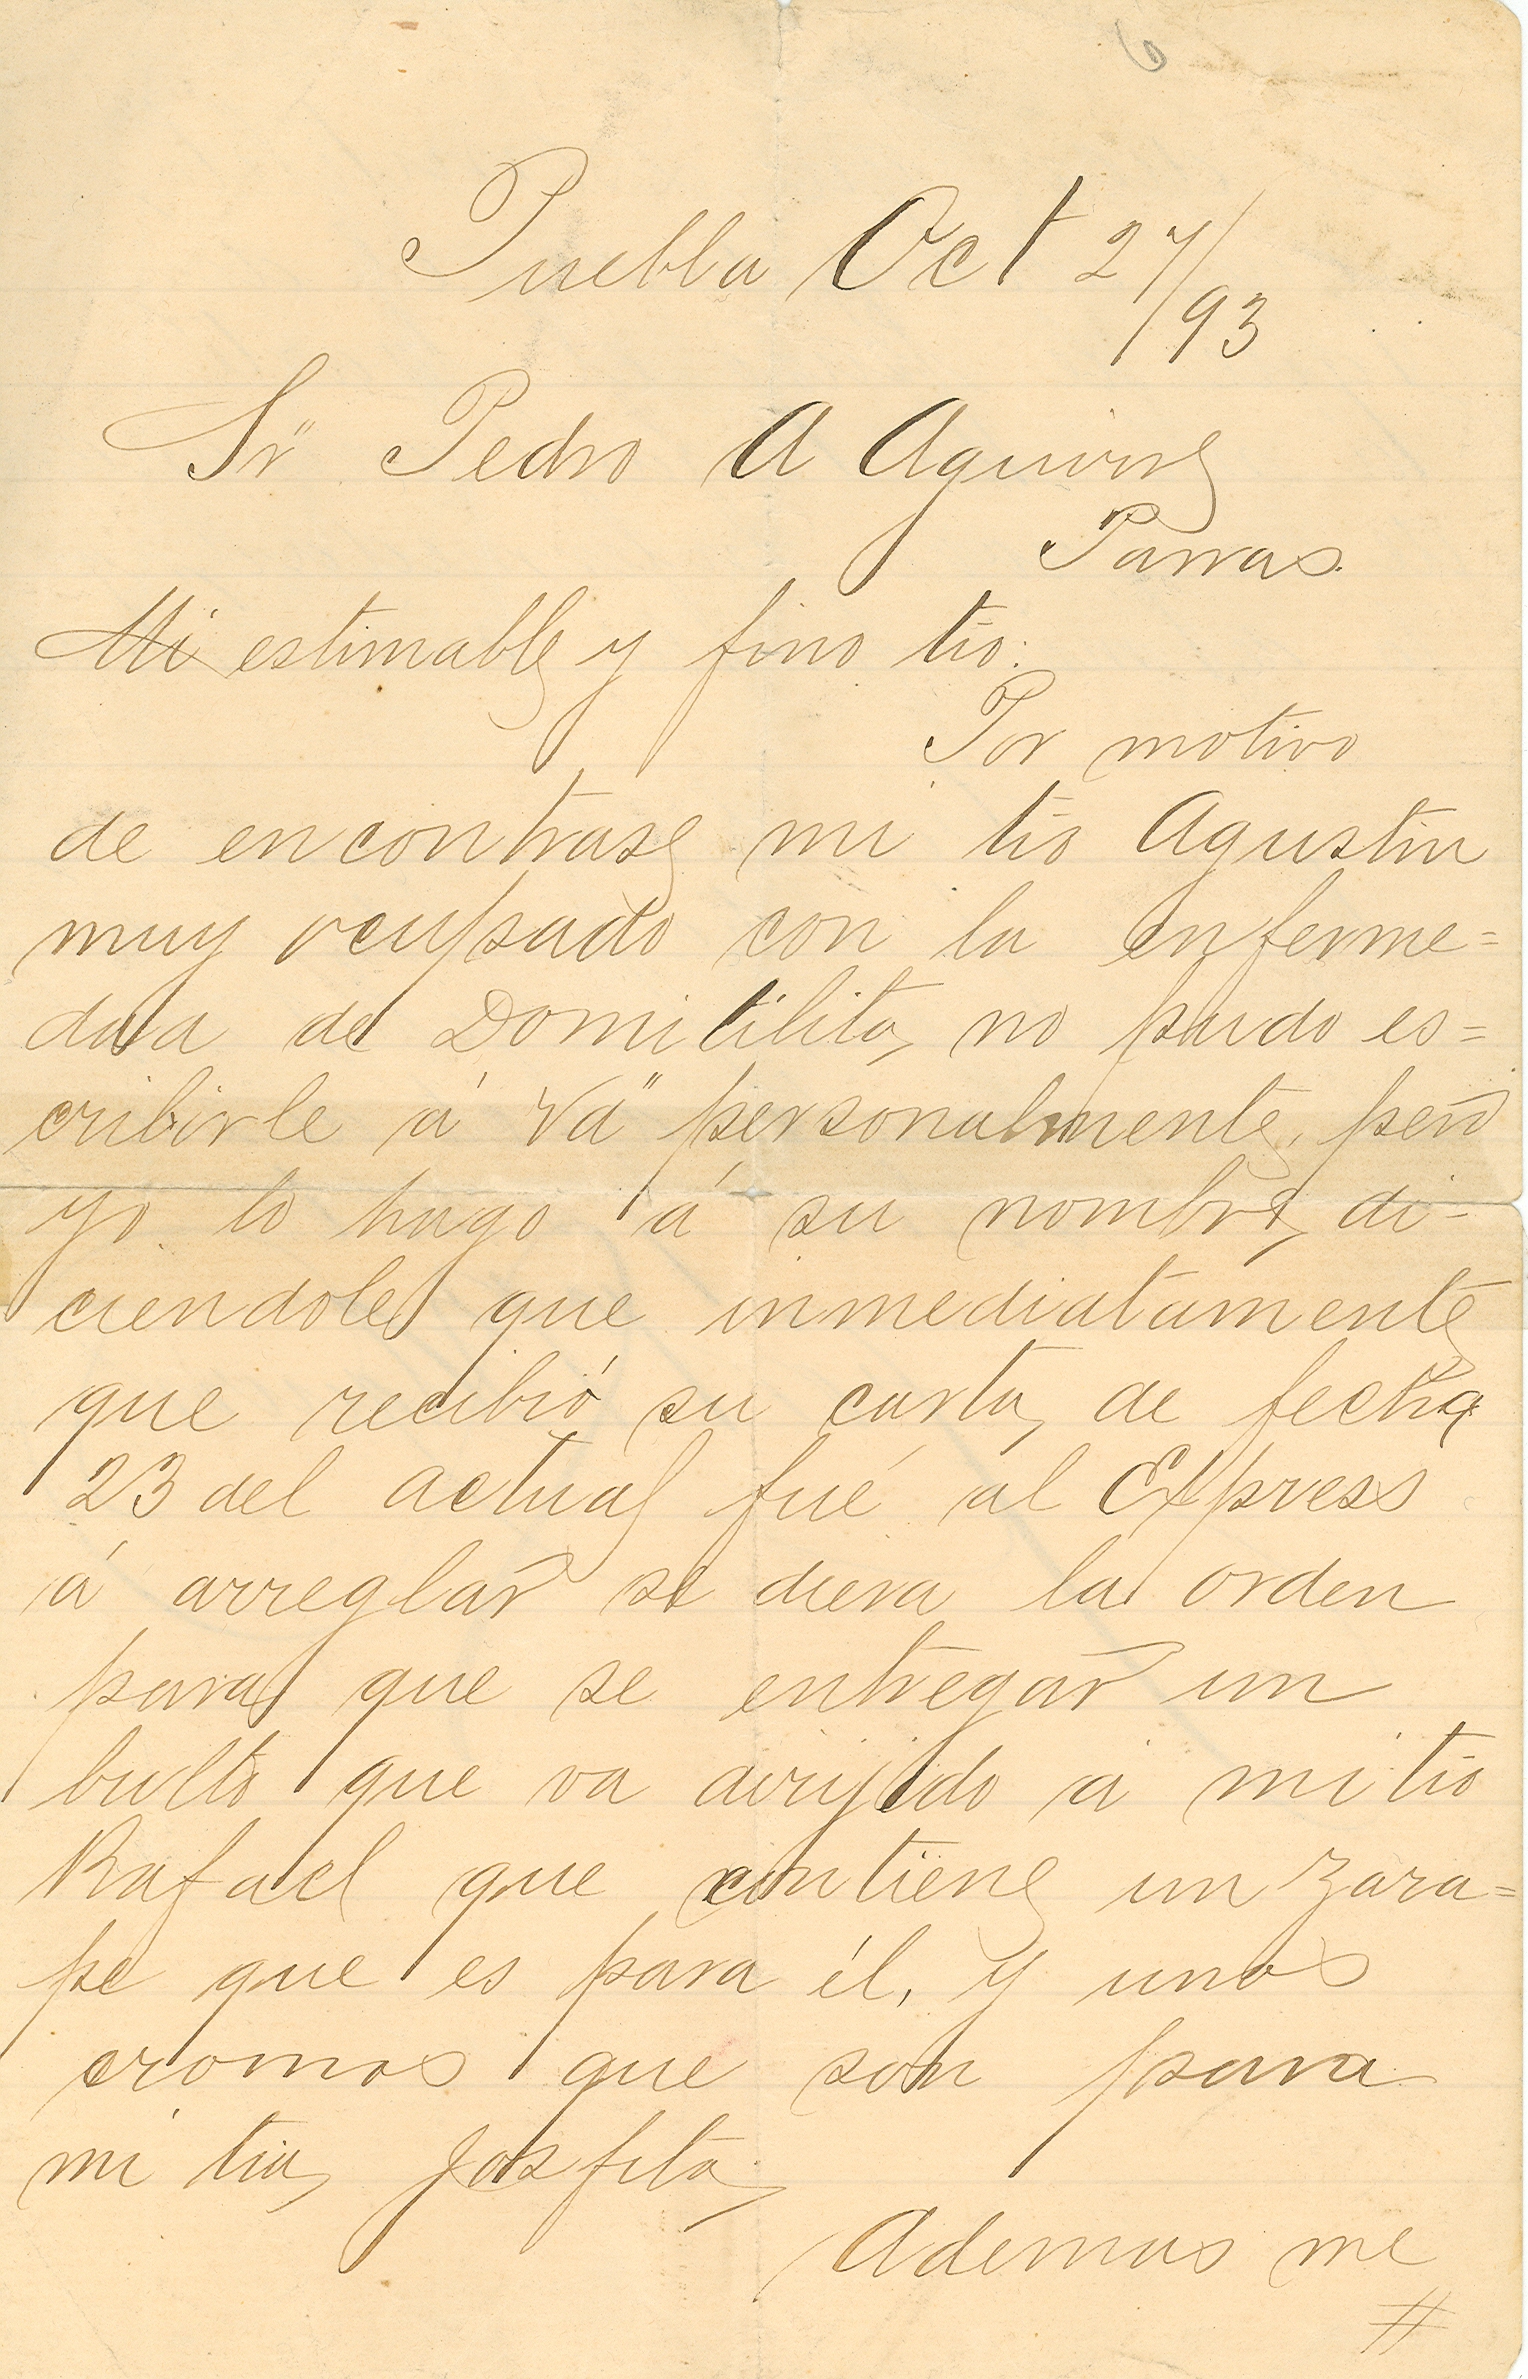 6
Puebla Oct 27/
/93
Sr" Pedro A Aguirre
Parras.
Mi estimable y fino tio:
Por motivo
de encontrase mi tio Agustin
muy ocupado con la enferme=
dad de Domitilita, no pudo es=
cribirle á Vd" personalmente, pero
yo lo hago á su nombre, di-
ciendole que inmediatamente
que recibió su carta, de fecha
23 del actual fué al Express
á arreglar se diera la orden
para que se entregar un
bulto que va dirijido á mi tio
Rafael que contiene un zara=
pe que es para él, y unos
cromos que son para
mi tia, Josfita,
Ademas me
#